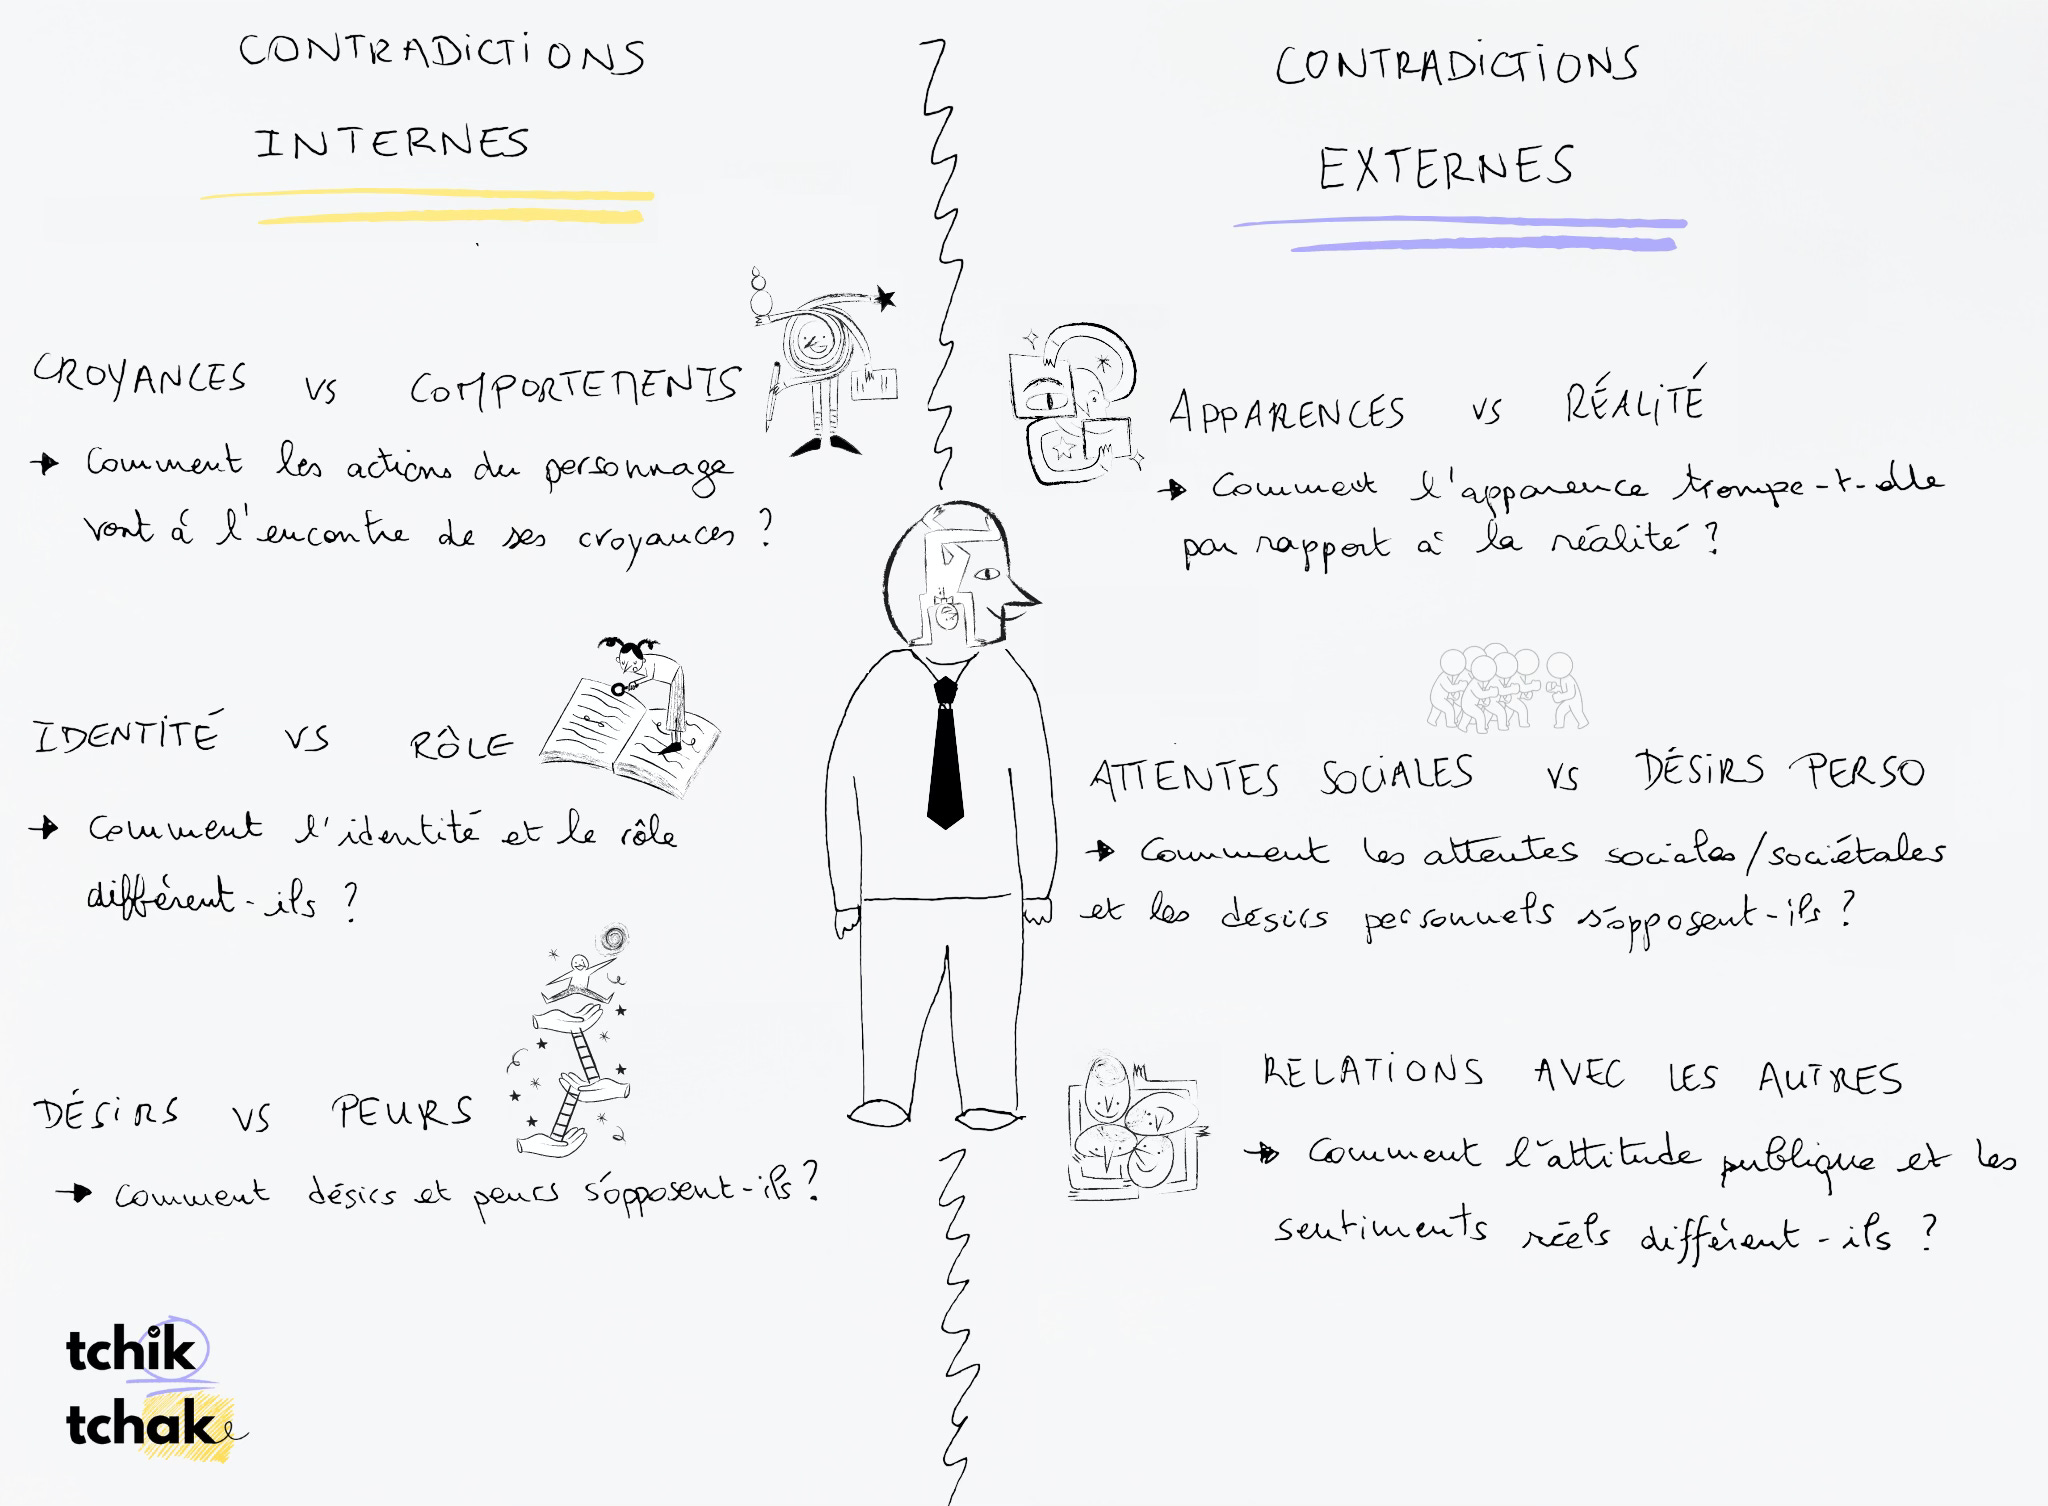 CONTRADICTIONS
INTERNES
CROYANCES vs COMPORTEMENTS
→ Comment les actions du personnage
vont à l'encontre de ses croyances ?
IDENTITÉ vs RÔLE
→ Comment l'identité et le rôle
différent-ils ?
DÉSIRS vs PEURS
→ Comment désirs et peurs s'opposent-ils ?
tchik
tchak
CONTRADICTIONS
EXTERNES
APPARENCES vs RÉALITÉ
→ Comment l'apparence trompe-t-elle
par rapport à la réalité ?
ATTENTES SOCIALES vs DÉSIRS PERSO
→ Comment les attentes sociales/sociétales
et les désirs personnels s'opposent-ils ?
RELATIONS AVEC LES AUTRES
→ Comment l'attitude publique et les
sentiments réels différent-ils ?